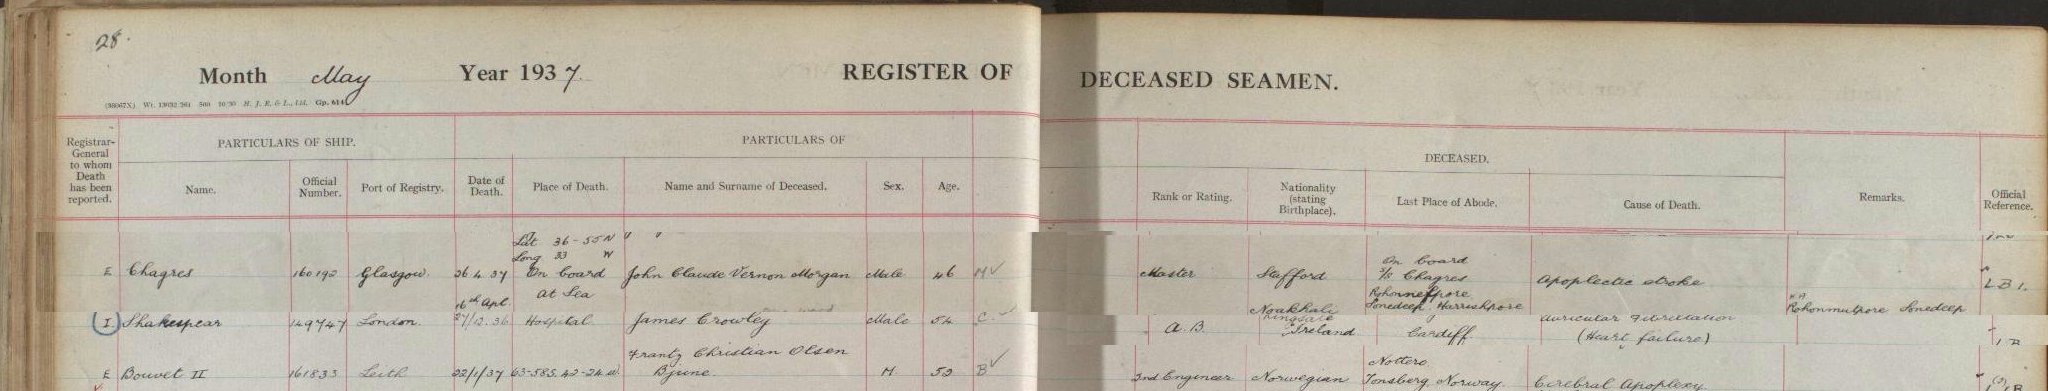 28.
Month May Year 1937. REGISTER OF DECEASED SEAMEN.
(38067X) Wt. 500 10/30 H. J. R. & L., Ltd. Gp. 614
Registrar-General to whom Death has been reported.
PARTICULARS OF SHIP.
PARTICULARS OF
DECEASED.
Name. Official Number. Port of Registry. Date of Death. Place of Death. Name and Surname of Deceased. Sex. Age. Rank or Rating. Nationality (stating Birthplace). Last Place of Abode. Cause of Death. Remarks. Official Reference.
Lat 36-55 N " "
Long 33 W
E Chagres 160192 Glasgow. 26 4 37 On board John Claude Vernon Morgan Male 46 M✓ Master Stafford On board Apoplectic stroke LB 1.
at Sea S/S Chagres
16th Apl. Noakhali Sondeep Hurrishpore Rohonmutpore Sondeep
I Shakespear 149747 London. 27/12.36 Hospital. James Crowley Male 54 C✓ A.B Ireland Cardiff. (Heart failure)
Frantz Christian Olsen
E Bouvet II 161833 Leith 22/1/37 63-58S. 42-24 W. Bjune. M. 52 B✓ 2nd Engineer Norwegian Nottero Tonsberg, Norway. Cerebral Apoplexy